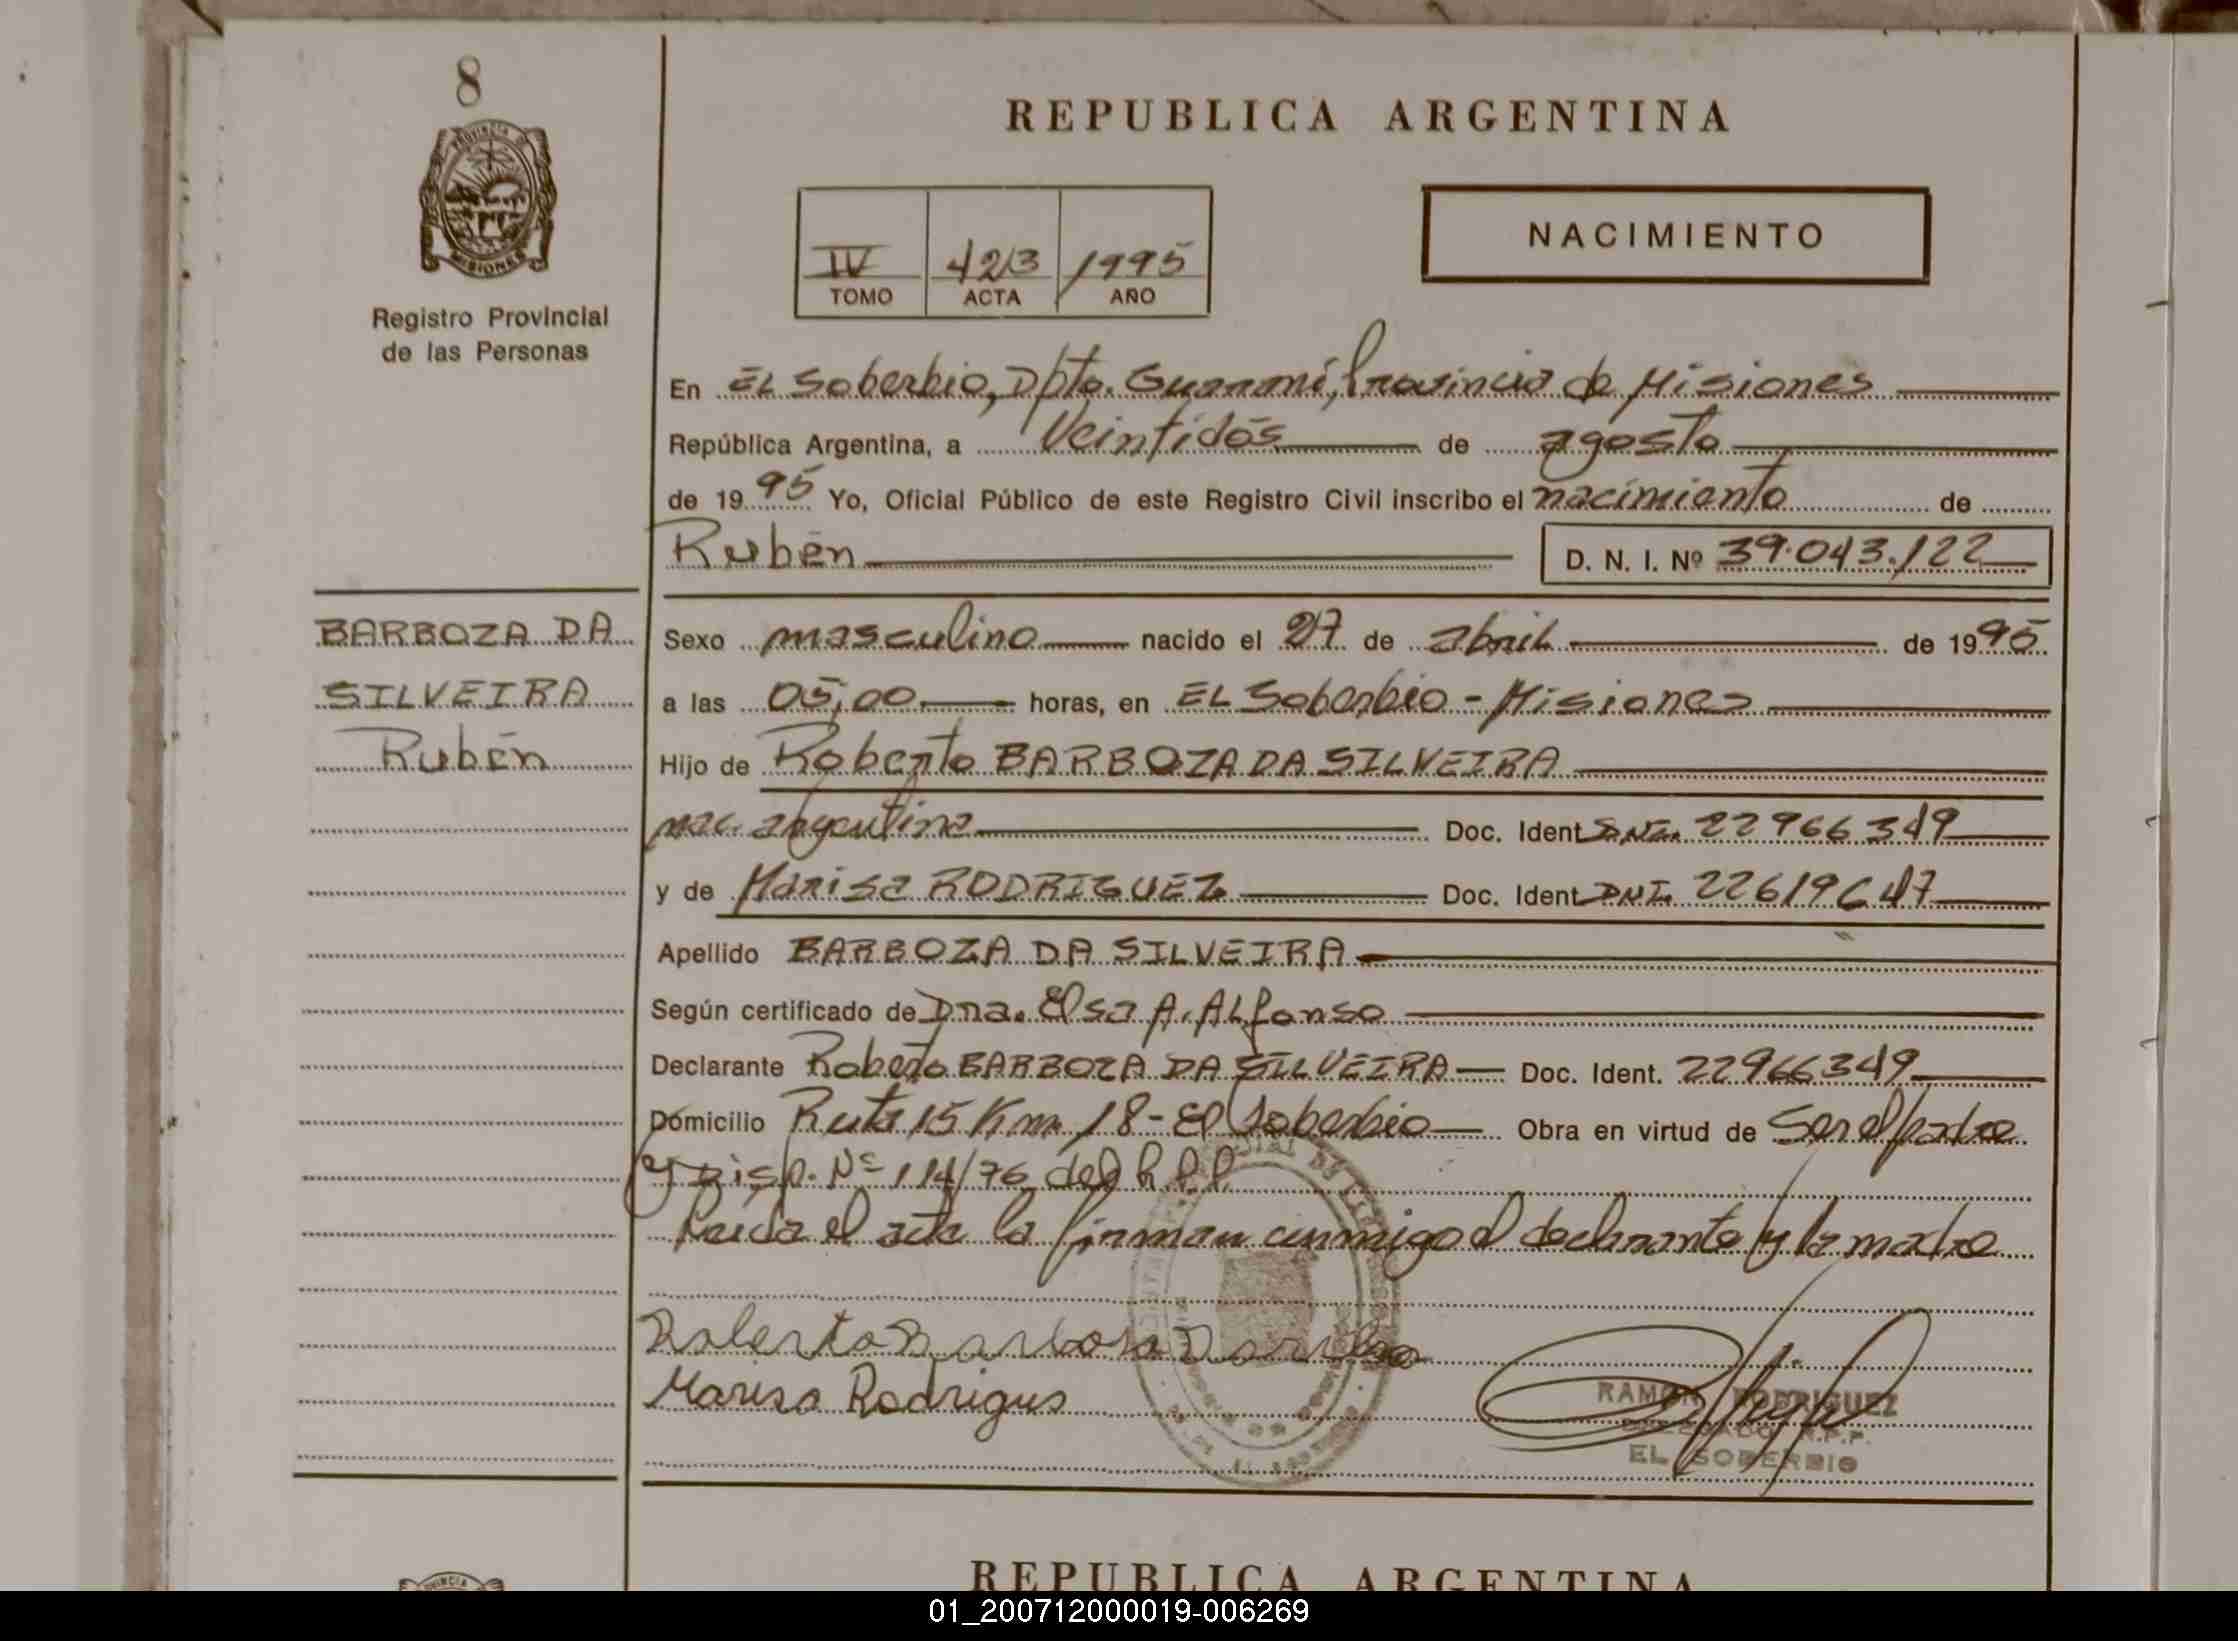 8
REPUBLICA ARGENTINA
PROVINCIA DE
MISIONES
Registro Provincial
de las Personas
IV 423 1995
TOMO ACTA AÑO
NACIMIENTO
En EL Soberbio, Dpto. Guaraní, Provincia de Misiones
República Argentina, a Veintidós de agosto
de 1995 Yo, Oficial Público de este Registro Civil inscribo el nacimiento de
Rubén D. N. I. Nº 39.043.122
BARBOZA DA
SILVEIRA
Rubén
Sexo masculino nacido el 27 de abril de 1995
a las 05,00 horas, en EL Soberbio - Misiones
Hijo de Roberto BARBOZA DA SILVEIRA
nac. argentina Doc. Ident DNI. 22966349
y de Marisa RODRIGUEZ Doc. Ident DNI. 22619647
Apellido BARBOZA DA SILVEIRA
Según certificado de Dna. Elsa A. ALfonso
Declarante Roberto BARBOZA DA SILVEIRA Doc. Ident. 22966349
Domicilio Ruta 15 Km 18 - El Soberbio Obra en virtud de Ser el padre
y Disp. Nº 114/76 del R.P.P.
Leída el acta la firman conmigo el declarante y la madre
Roberto Barboza
Marisa Rodrigus
RAMON RODRIGUEZ
DELEGADO R.P.P.
EL SOBERBIO
REPUBLICA ARGENTINA
01_200712000019-006269